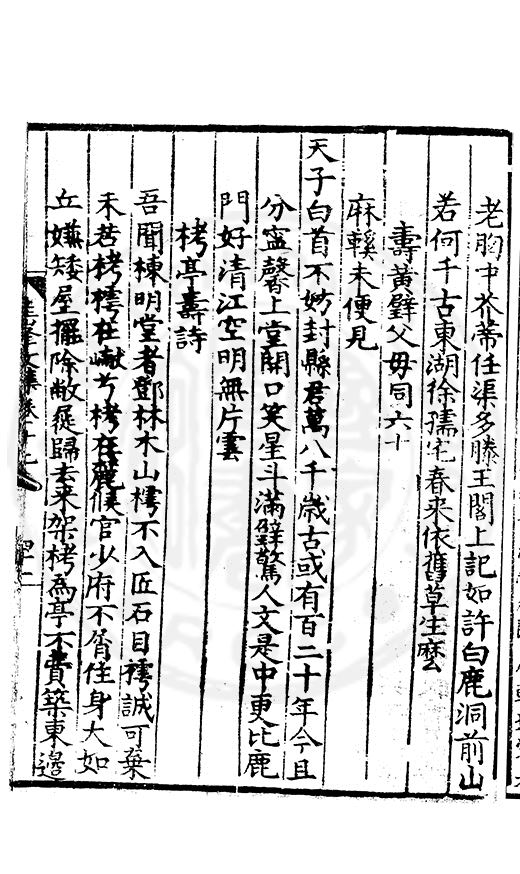 老胸中芥蒂任渠多滕王閣上記如許白鹿洞前山
若何千古東湖徐孺宅春來依舊草生麽
壽黃壁父毋同六十
麻轅未便見
天子白首不妨封縣君萬八千歲古或有百二十年今且
分寧馨上堂開口笑星斗滿壁驚人文是中更比鹿
門好清江空明無片雲
栲亭壽詩
吾聞棟明堂者鄧林木山樗不入匠石目樗誠可棄
未若栲樗在巘兮栲在麓候官少府不屑住身大如
丘嫌矮屋擺除敝屣歸去来架栲為亭不費築東邊